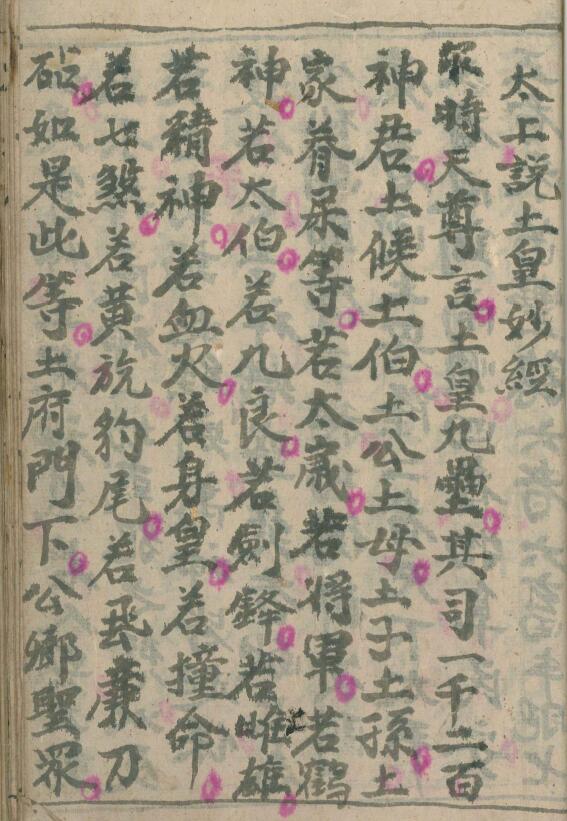 太上説土皇妙經
尒時天尊言土皇九壘其司一千二百
神君土候土伯土公土母土子土孫土
家眷屬等若太歲若將軍若鶴
神若太伯若九良若劍鋒若雌雄
若豬神若血刃若身皇若撞命
若七煞若黃旛豹尾若飛廉刀
砧如是此等土府門下公卿聖眾